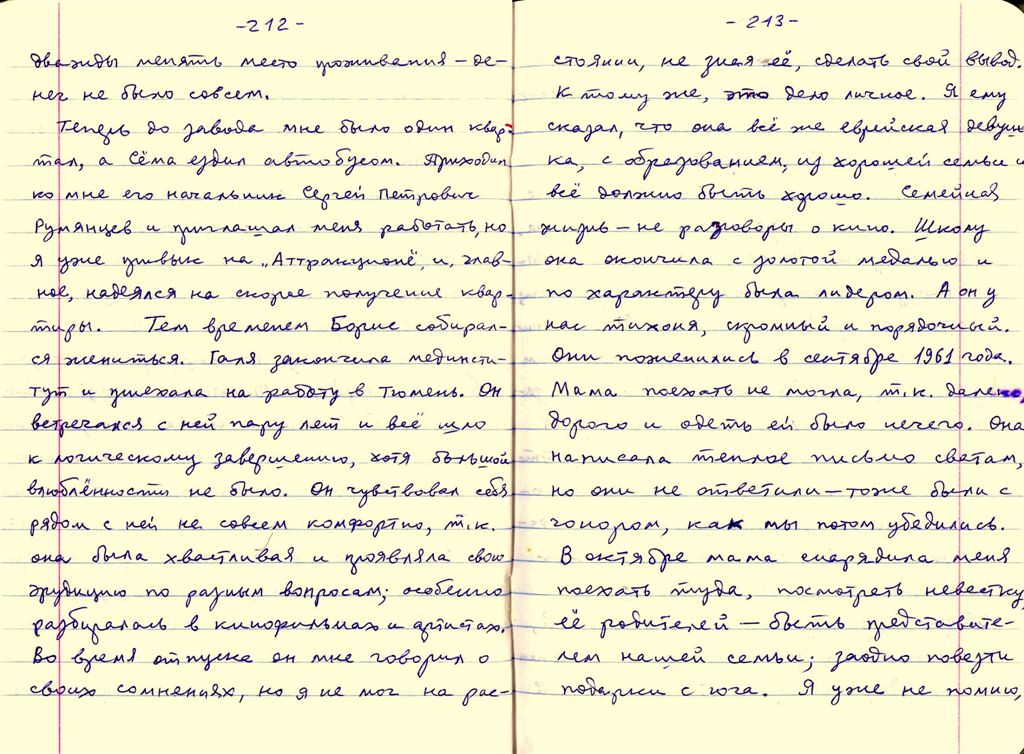 -212-
дважды менять место проживания – де-
нег не было совсем.
Теперь до завода мне было один квар-
тал, а Сёма ездил автобусом. Приходил
ко мне его начальник Сергей Петрович
Румянцев и приглашал меня работать, но
я уже привык на „Аттракционе", и, глав-
ное, надеялся на скорое получение квар-
тиры. Тем временем Борис собирал-
ся жениться. Галя закончила мединсти-
тут и приехала на работу в Тюмень. Он
встречался с ней пару лет и всё шло
к логическому завершению, хотя большой
влюблённости не было. Он чувствовал себя
рядом с ней не совсем комфортно, т.к.
она была хвастливая и проявляла свою
эрудицию по разным вопросам; особенно
разбиралась в кинофильмах и артистах.
Во время отпуска он мне говорил о
своих сомнениях, но я не мог на рас-
-213-
стоянии, не зная её, сделать свой вывод.
К тому же, это дело личное. Я ему
сказал, что она всё же еврейская девуш-
ка, с образованием, из хорошей семьи и
всё должно быть хорошо. Семейная
жизнь – не разговоры о кино. Школу
она окончила с золотой медалью и
по характеру была лидером. А он у
нас тихоня, скромный и порядочный.
Они поженились в сентябре 1961 года.
Мама поехать не могла, т.к. далеко,
дорого и одеть ей было нечего. Она
написала теплое письмо сватам,
но они не ответили – тоже были с
гонором, как мы потом убедились.
В октябре мама снарядила меня
поехать туда, посмотреть невестку,
её родителей – быть представите-
лем нашей семьи; заодно повезти
подарки с юга. Я уже не помню,